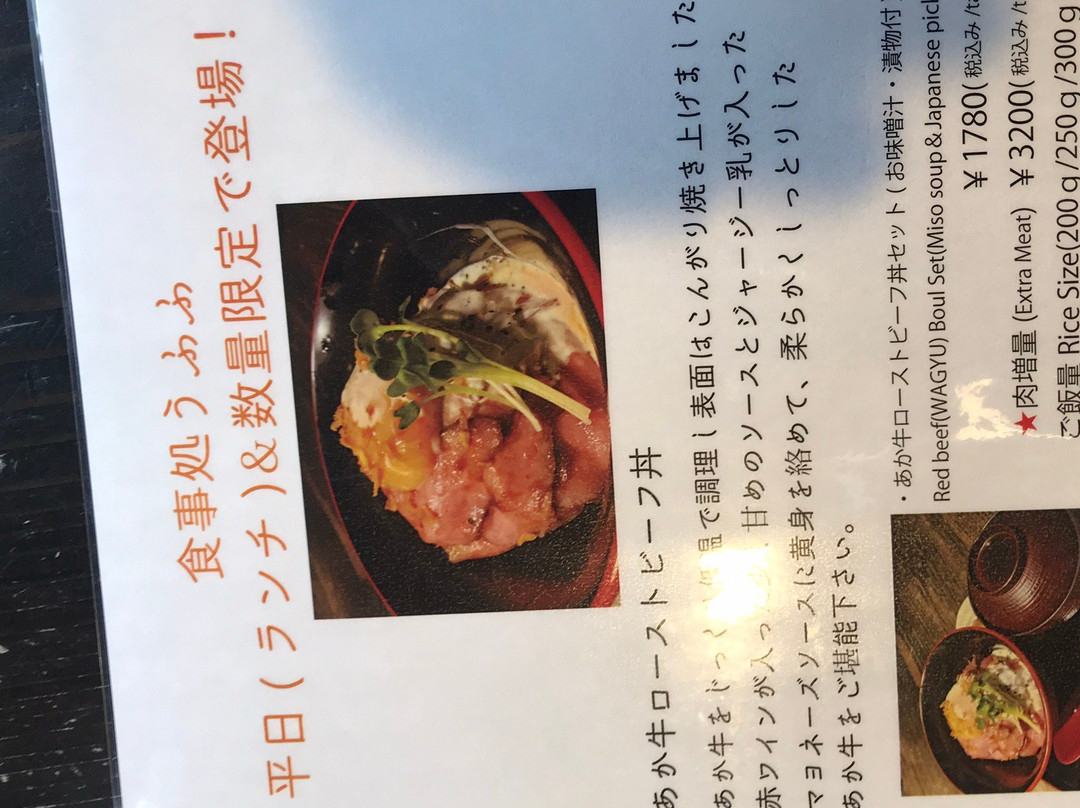 食事処うふふ
平日(ランチ)&数量限定で登場!
あか牛ローストビーフ丼
あか牛をじっくり低温で調理し表面はこんがり焼き上げました
赤ワインが入っ 甘めのソースとジャージー乳が入った
マヨネーズソースに黄身を絡めて、柔らかくしっとりした
あか牛をご堪能下さい。
・あか牛ローストビーフ丼セット(お味噌汁・漬物付)
Red beef(WAGYU) Boul Set(Miso soup&Japanese pickl
¥1780(税込み/ta
★肉増量 (Extra Meat) ¥3200(税込み/t
ご飯量 Rice Size(200g/250g/300g